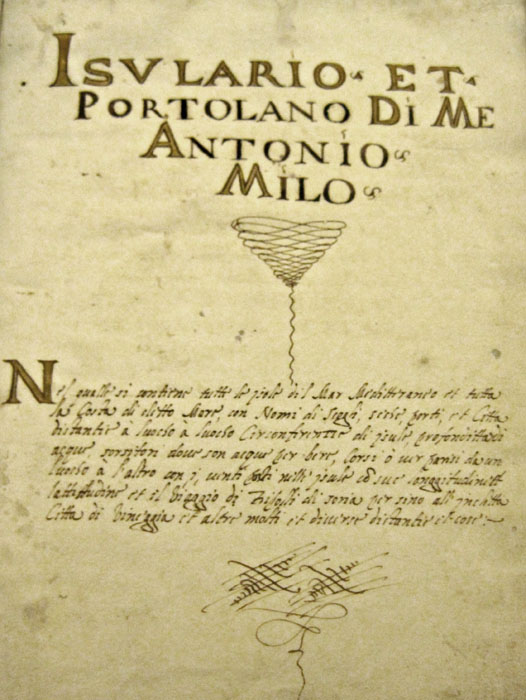 ISVLARIO ET
PORTOLANO DI ME
ANTONIO
MILO
Nel qualle si contiene tutte le isole dil Mar Mediterraneo et tutta
la Costa di ditto Mare, con Nomi di porti, et Citta
distantie à luocho à luocho Circonferentie di isole profondita di
acque, sorsitori doue son acque per bere, Corsi da un
luocho à l'altro con venti nelle isole longgitudine et
lattittudine et il biaggio di soria per sino all' inclitta
Citta di Vineggia et altre molti et diuerse distantie et cose